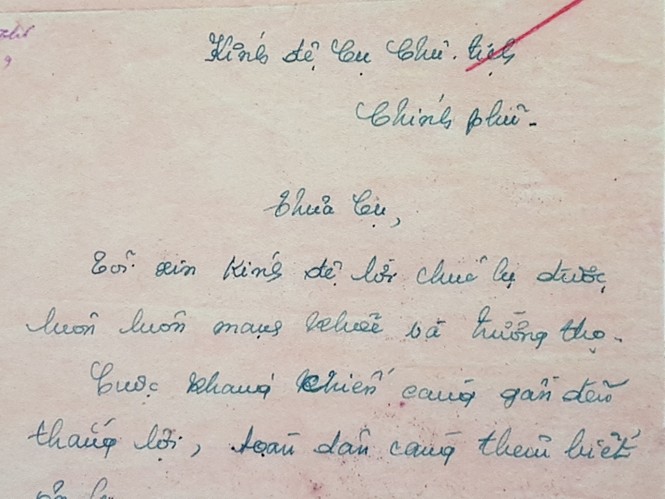 Kính đệ Cụ Chủ-tịch
Chính phủ-
Thưa Cụ,
Tôi xin Kính đệ lời chúc cụ được
luôn luôn mạng khoẻ và trường thọ.
Cuộc kháng chiến càng gần đến
thắng lợi, toàn dân càng thêm biết
ơn